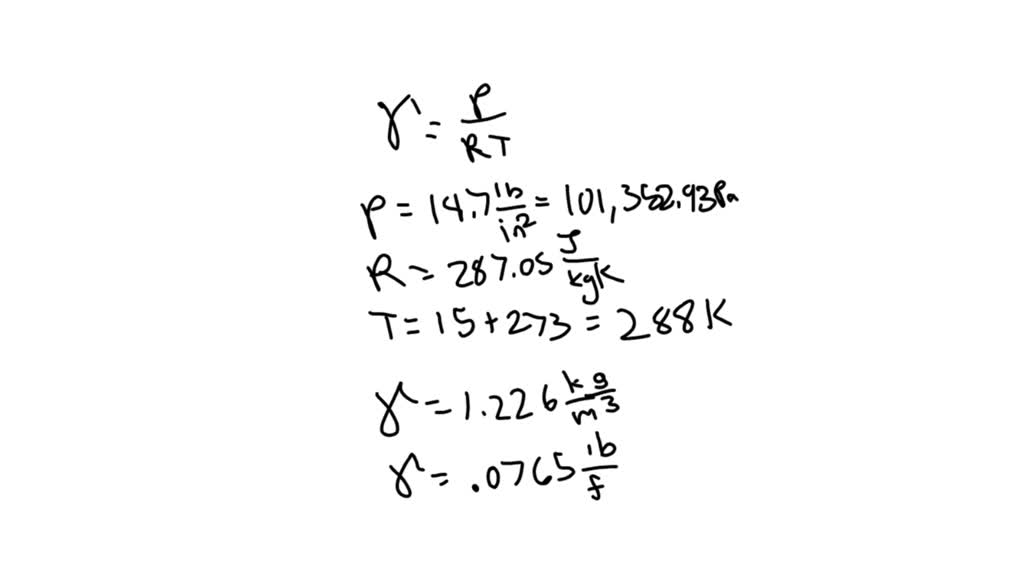 γ = P/RT
P = 14.7 lb/in² = 101,352.93 Pa
R = 287.05 J/kgK
T = 15 + 273 = 288 K
γ = 1.226 kg/m³
γ = .0765 lb/f